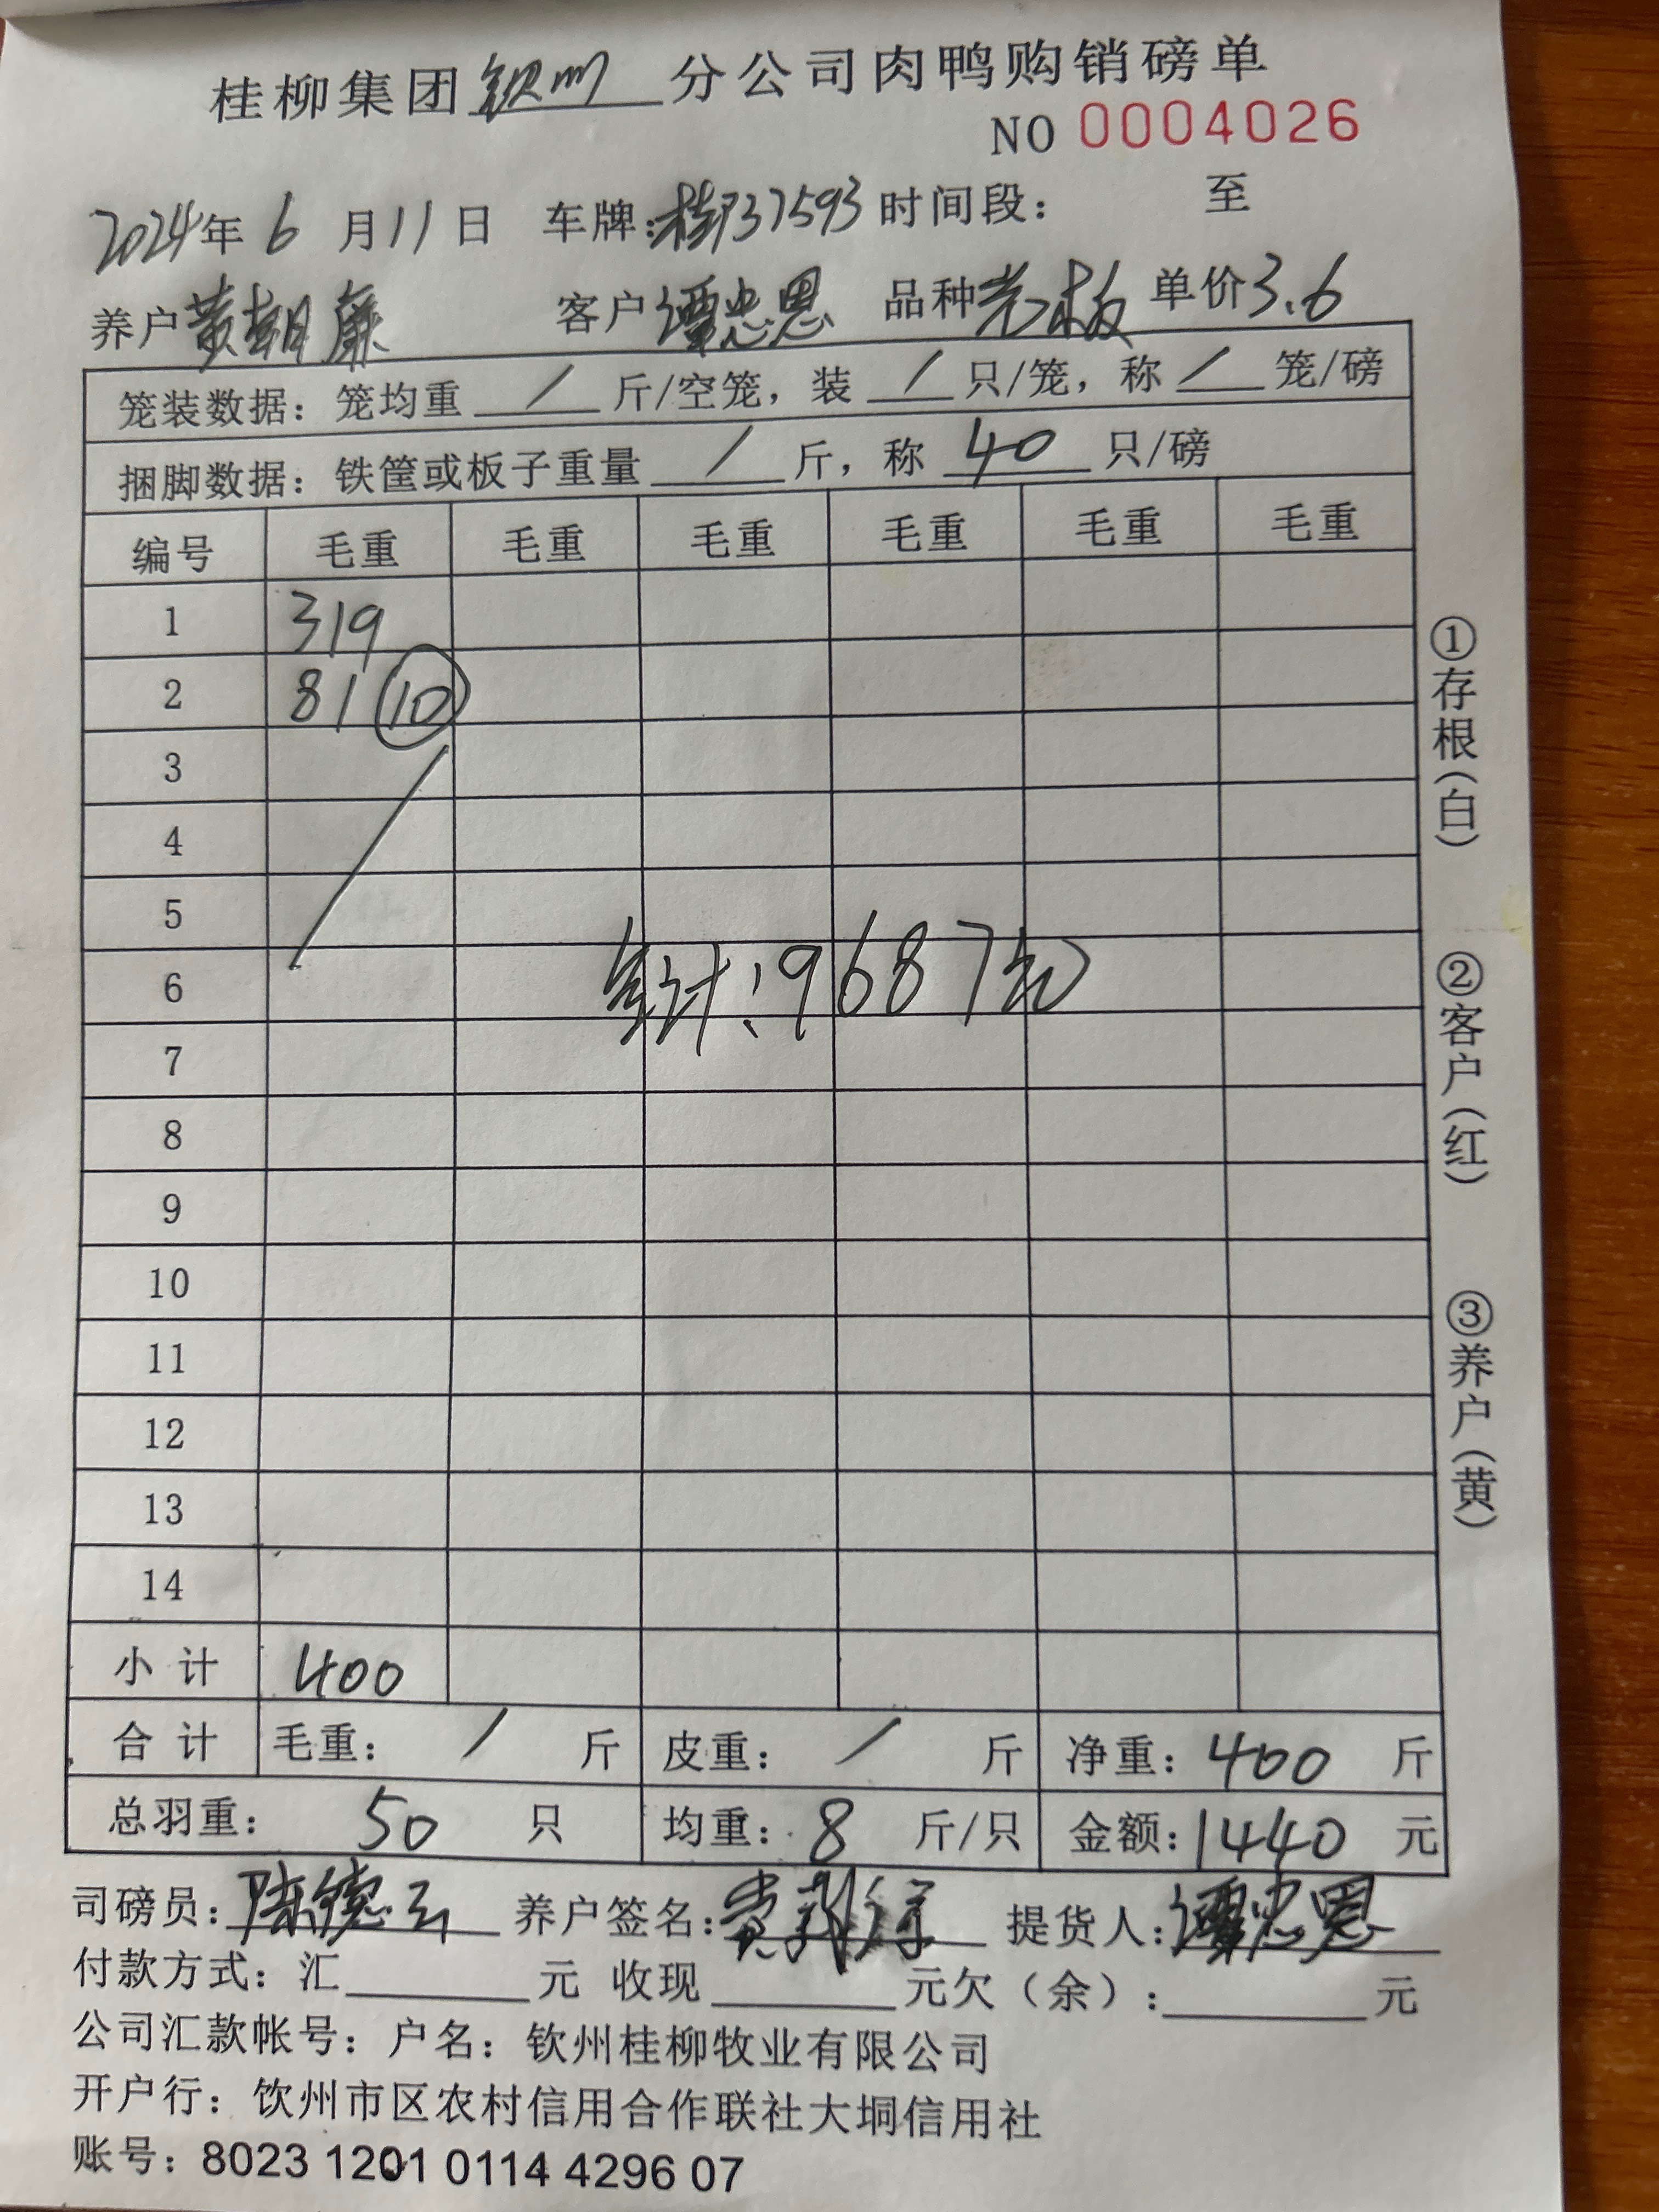 桂柳集团钦州分公司肉鸭购销磅单
NO 0004026
2024年6月11日 车牌:桂P37593 时间段: 至
养户黄朝廉 客户谭忠恩 品种光板 单价3.6
笼装数据:笼均重 / 斤/空笼,装 / 只/笼,称 / 笼/磅
捆脚数据:铁筐或板子重量 / 斤,称 40 只/磅
编号 毛重 毛重 毛重 毛重 毛重 毛重
1 319
2 81 ⑩
3
4
5
6
累计:9687元
7
8
9
10
11
12
13
14
小计 400
合计 毛重: / 斤 皮重: / 斤 净重:400 斤
总羽重: 50 只 均重:8 斤/只 金额:1440 元
司磅员:陈德云 养户签名: 提货人:谭忠恩
付款方式:汇 元 收现 元欠(余): 元
公司汇款帐号:户名:钦州桂柳牧业有限公司
开户行:钦州市区农村信用合作联社大垌信用社
账号:8023 1201 0114 4296 07
①存根(白)
②客户(红)
③养户(黄)